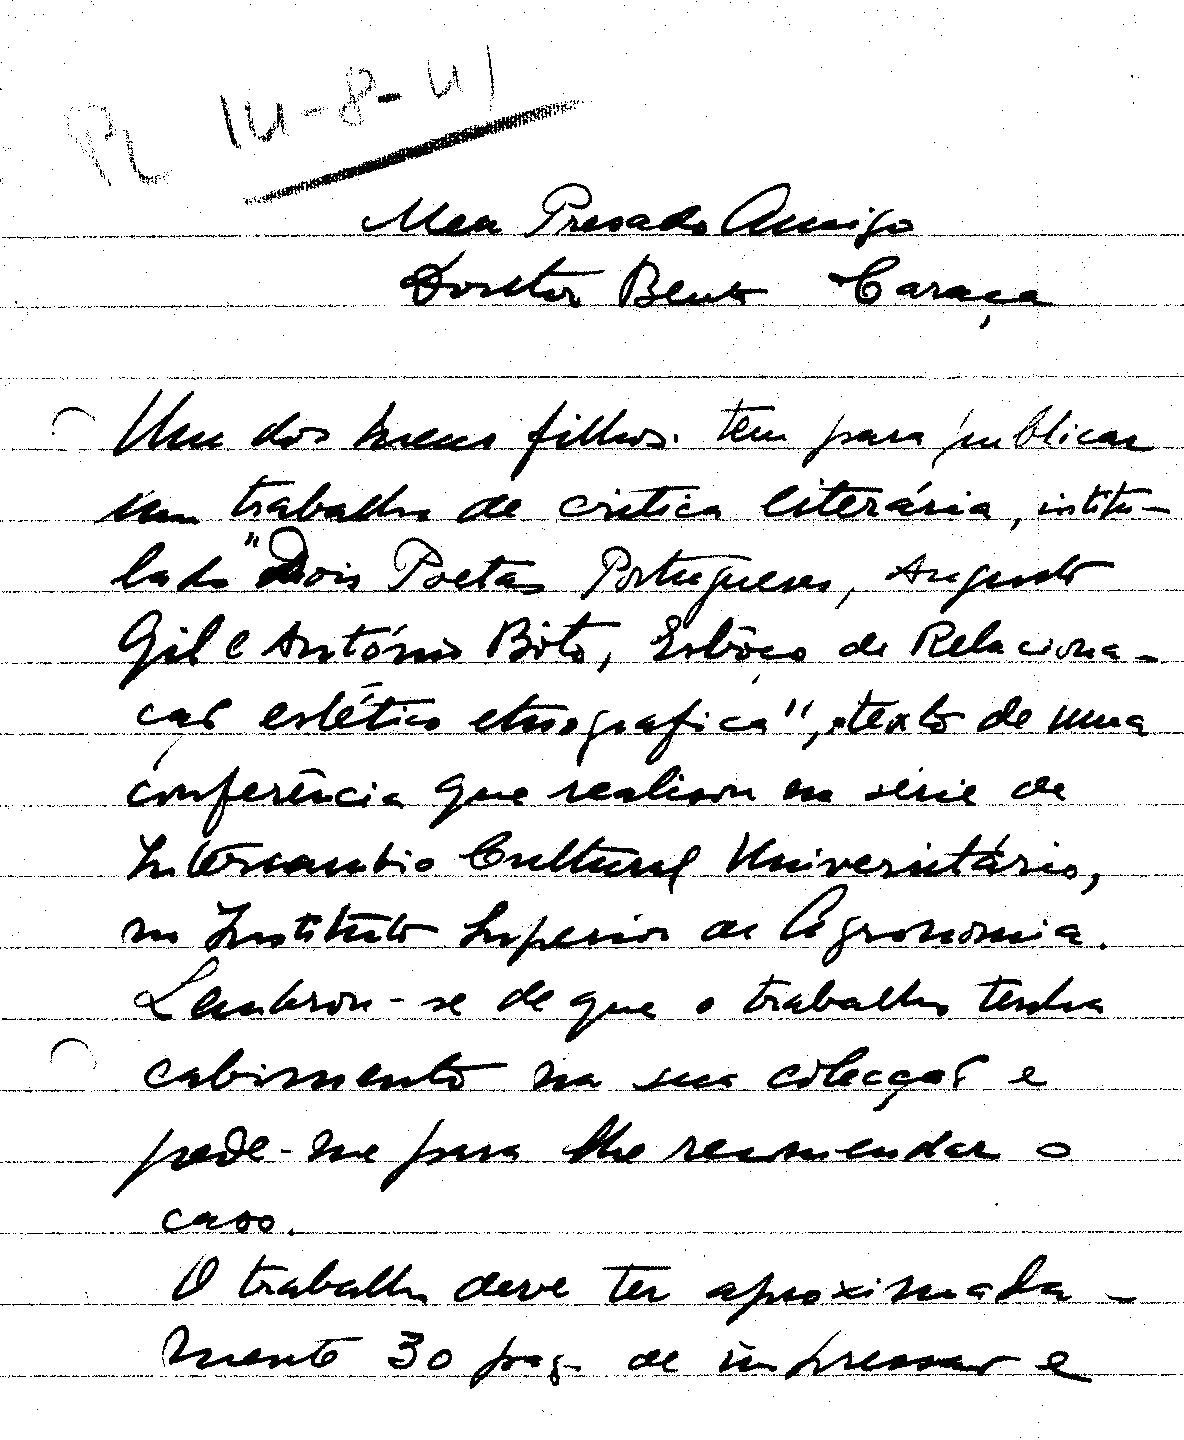 R 14-8-41
Meu Presado Amigo
Doutor Bento Caraça
Um dos meus filhos. tem para publicar
um trabalho de critica literária, intitu-
lado "Dois Poetas Portugueses, Augusto
Gil e António Bôto, Esbôço de Relaciona-
ção estético etnografica", texto de uma
conferência que realisou na série de
Intercambio Cultural Universitário,
no Instituto Superior de Agronomia.
Lembrou-se de que o trabalho tenha
cabimento na sua colecção e
pede-me para lhe recomendar o
caso.
O trabalho deve ter aproximada-
mente 30 pag. de impressão e